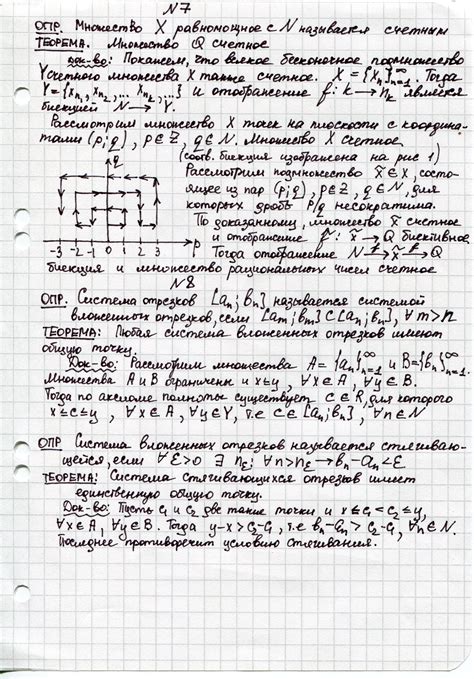 N7
ОПР. Множество X равномощное с N называется счетным
ТЕОРЕМА. Множество Q счетное
Док-во: Покажем, что всякое бесконечное подмножество
Y счетного множества X также счетное. X = {x_n}_{n=1}^∞. Тогда
Y={x_{n_1}, x_{n_2}, ... x_{n_k}, ...} и отображение f: k → n_k является
биекцией N → Y.
Рассмотрим множество X точек на плоскости с координа-
тами (p;q), p∈Z, q∈N. Множество X счетное
(соотв. биекция изображена на рис 1)
Рассмотрим подмножество X̃∈X, состо-
ящее из пар (p;q), p∈Z, q∈N, для
которых дробь p/q несократима.
По доказанному, множество x̃ счетное
и отображение f̃: x̃ → Q биективное
q
-3 -2 -1 0 1 2 3 p
Тогда отображение N →f x̃ →f̃ Q
биекция и множество рациональных чисел счетное
N8
ОПР. Система отрезков [a_n; b_n] называется системой
вложенных отрезков, если [a_m; b_m] ⊂ [a_n; b_n], ∀ m>n
ТЕОРЕМА: Любая система вложенных отрезков имеют
общую точку.
Док-во: Рассмотрим множества A={a_n}_{n=1}^∞ и B={b_n}_{n=1}^∞.
Множества A и B ограничены и x≤y, ∀x∈A, ∀y∈B.
Тогда по аксиоме полноты существует c∈R, для которого
x≤c≤y, ∀x∈A, ∀y∈Y, т.е c∈[a_n; b_n], ∀n∈N
ОПР Система вложенных отрезков называется стягиваю-
щейся, если ∀ε>0 ∃ n_ε; ∀n>n_ε → b_n-a_n<ε
ТЕОРЕМА: Система стягивающихся отрезков имеет
единственную общую точку.
Док-во: Пусть c_1 и c_2 две такие точки и x≤c_1<c_2≤y,
∀x∈A, ∀y∈B. Тогда y-x>c_2-c_1, т.е b_n-a_n>c_2-c_1, ∀n∈N.
Последнее противоречит условию стягивания.